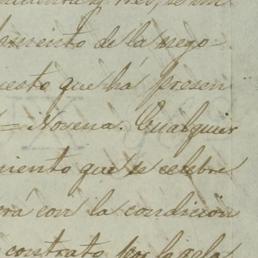 miento de la nego
uesto que há presen
= Novena. Cualquier
miento que se celebre
erá con la condicion
contrato, por la sola